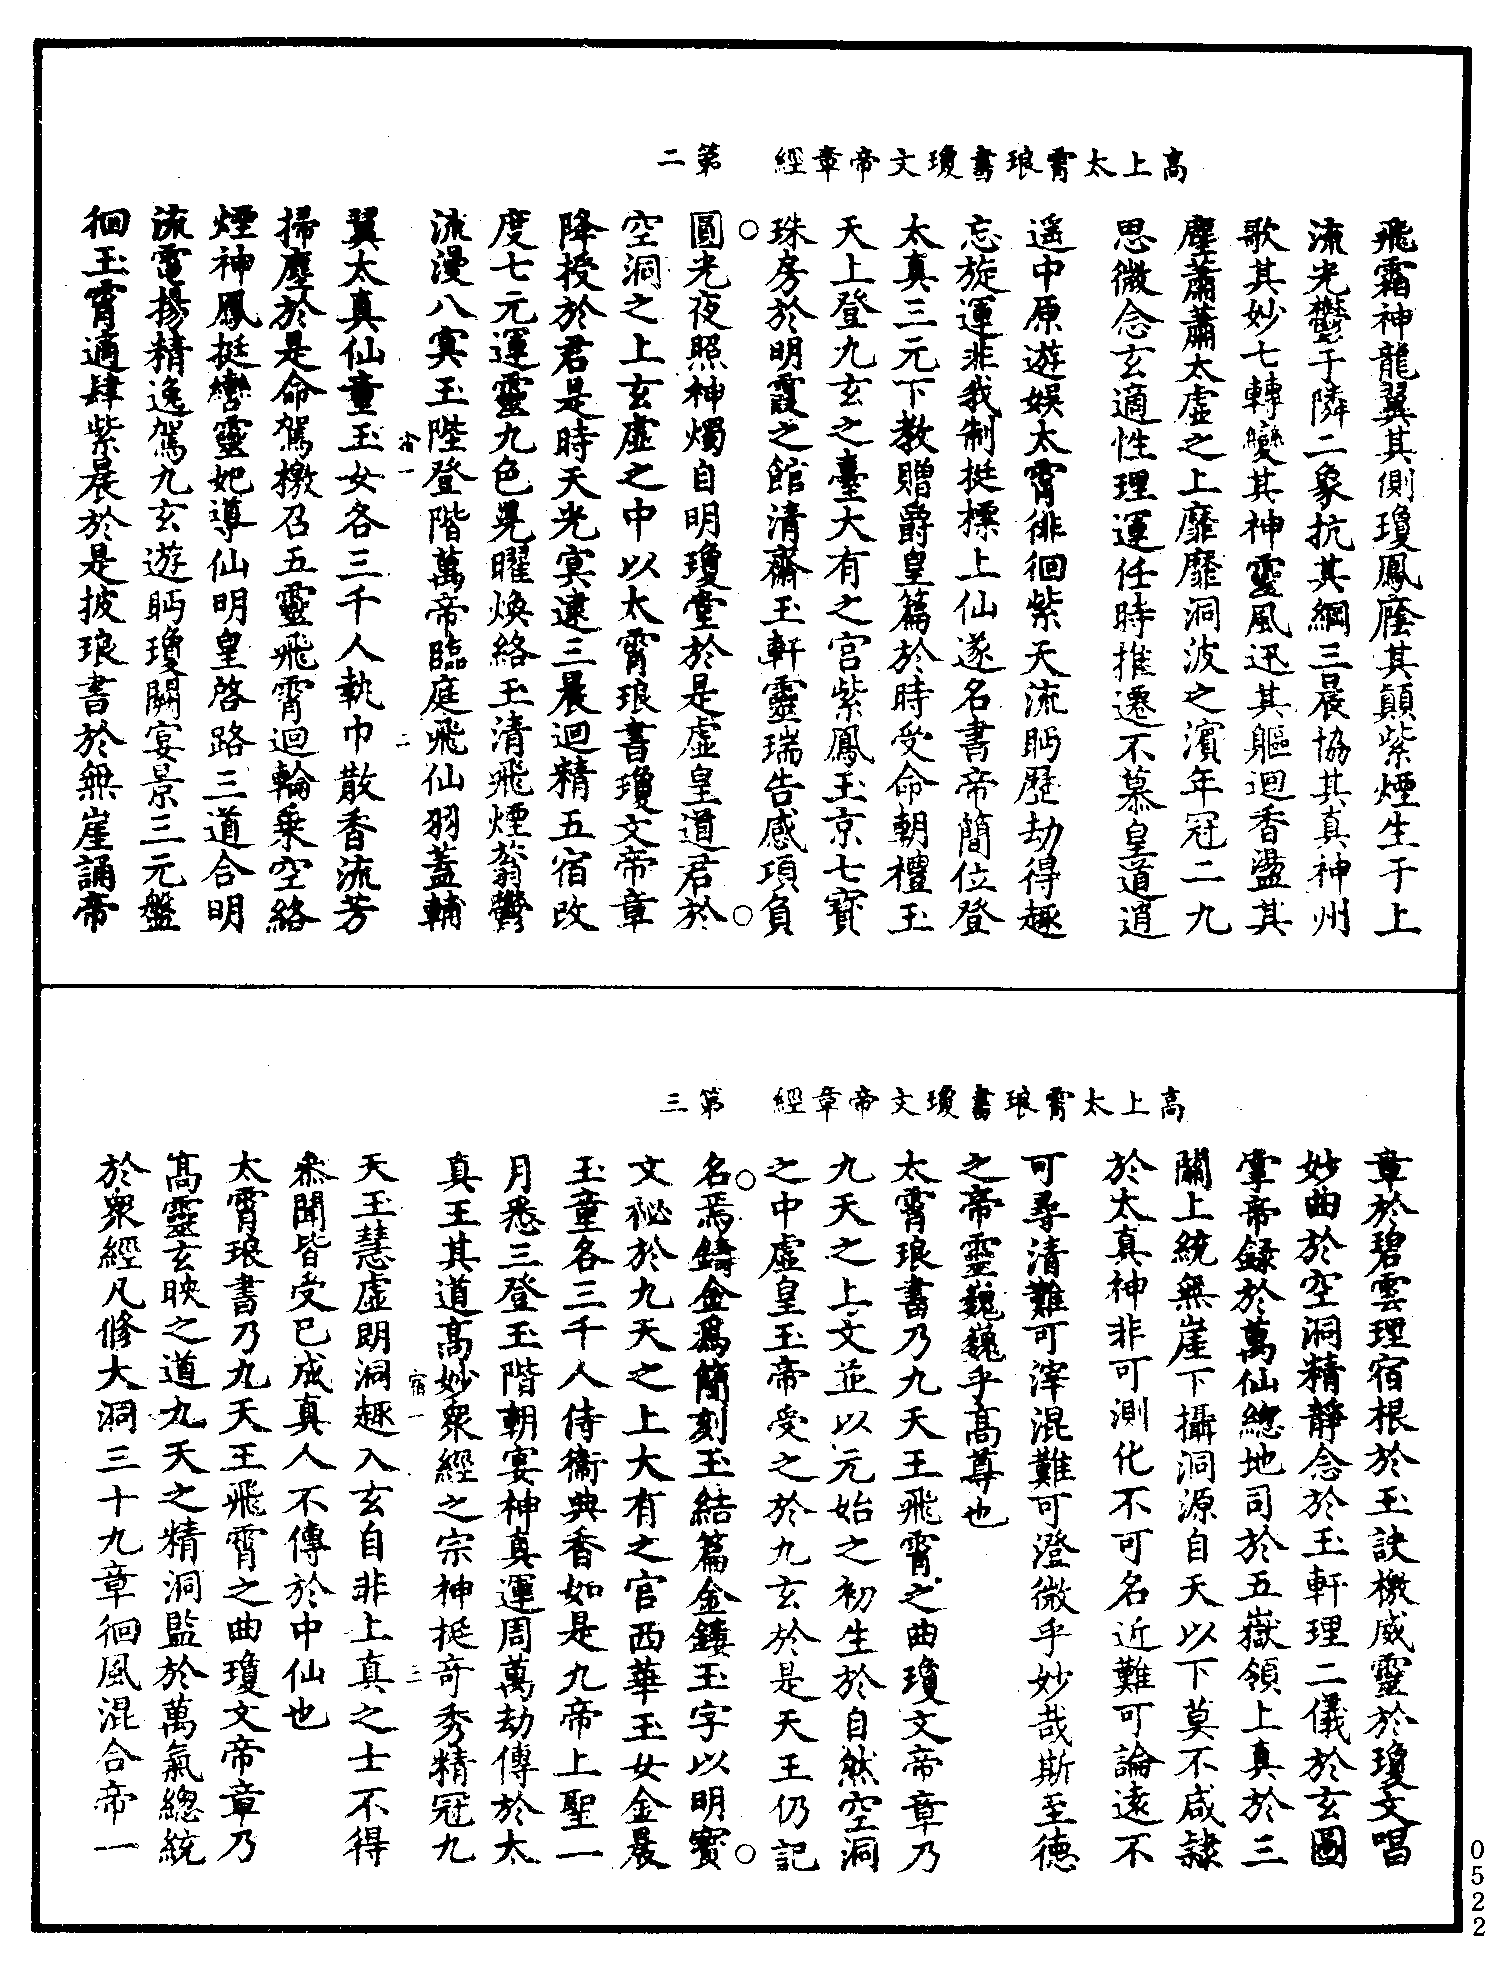 高上太霄琅書瓊文帝章經　第二
飛霜神龍翼其側瓊鳳廕其顛紫煙生于上
流光鬱于隣二象抗其綱三晨協其真神州
歌其妙七轉變其神靈風迅其軀迴香盪其
塵蕭蕭太虛之上靡靡洞波之濱年冠二九
思微念玄適性理運任時推遷不慕皇道逍
遥中原遊娛太霄徘徊紫天流眄歷劫得趣
忘旋運非我制挺標上仙遂名書帝簡位登
太真三元下教贈爵皇篇於時受命朝禮玉
天上登九玄之臺大有之宮紫鳳玉京七寶
珠房於明霞之館清齋玉軒靈瑞告感項負
圓光夜照神燭自明瓊堂於是虛皇道君於
空洞之上玄虛之中以太霄琅書瓊文帝章
降授於君是時天光冥遠三晨迴精五宿改
度七元運靈九色晃曜煥絡玉清飛煙蓊鬱
流漫八寞玉陛登階萬帝臨庭飛仙羽蓋輔
翼太真仙童玉女各三千人執巾散香流芳
掃塵於是命駕檄召五靈飛霄迴輪乘空絡
煙神鳳挺轡靈妃導仙明皇啓路三道合明
流電揚精逸駕九玄遊眄瓊闕宴景三元盤
徊玉霄適肆紫晨於是披琅書於無崖誦帝
高上太霄琅書瓊文帝章經　第三
章於碧雲理宿根於玉訣檄威靈於瓊文唱
妙曲於空洞精靜念於玉軒理二儀於玄圖
掌帝錄於萬仙總地司於五嶽領上真於三
關上統無崖下攝洞源自天以下莫不咸隸
於太真神非可測化不可名近難可論遠不
可尋清難可滓混難可澄微乎妙哉斯至德
之帝靈巍巍乎高尊也
太霄琅書乃九天王飛霄之曲瓊文帝章乃
九天之上文並以元始之初生於自然空洞
之中虛皇玉帝受之於九玄於是天王仍記
名焉鑄金爲簡刻玉結篇金鏤玉字以明寶
文祕於九天之上大有之宮西華玉女金晨
玉童各三千人侍衞典香如是九帝上聖一
月悉三登玉階朝宴神真運周萬劫傳於太
真王其道高妙衆經之宗神挺奇秀精冠九
天玉慧虛朗洞趣入玄自非上真之士不得
叅聞皆受已成真人不傳於中仙也
太霄琅書乃九天王飛霄之曲瓊文帝章乃
高靈玄映之道九天之精洞監於萬氣總統
於衆經凡修大洞三十九章徊風混合帝一
0522